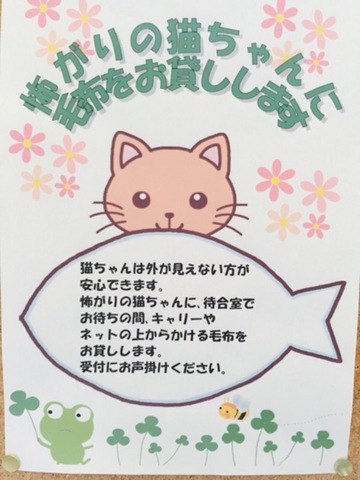 怖がりの猫ちゃんに
毛布をお貸しします
猫ちゃんは外が見えない方が
安心できます。
怖がりの猫ちゃんに、待合室で
お待ちの間、キャリーや
ネットの上からかける毛布を
お貸しします。
受付にお声掛けください。